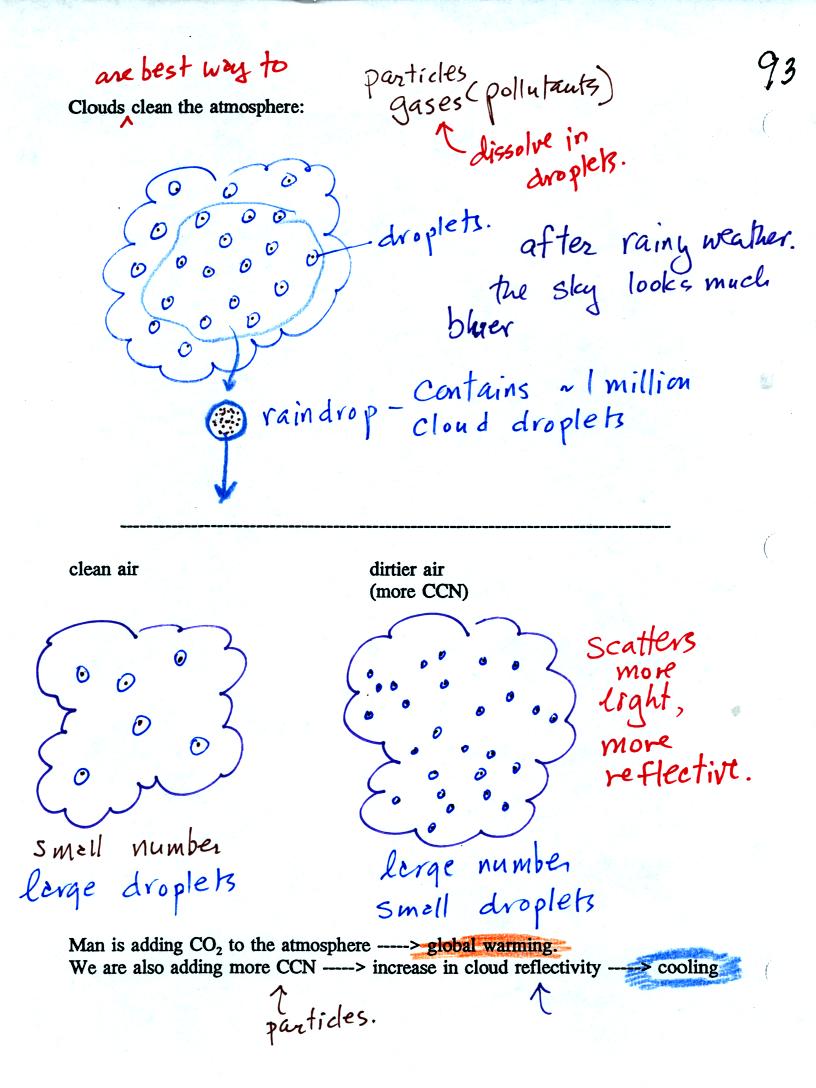 93
are best way to
Clouds ^ clean the atmosphere:
particles
gases (pollutants)
dissolve in
droplets.
droplets.
after rainy weather.
the sky looks much
bluer
raindrop - contains ~ 1 million
cloud droplets
clean air
dirtier air
(more CCN)
scatters
more
light,
more
reflective.
small number
large droplets
large number
small droplets
Man is adding CO₂ to the atmosphere -----> global warming.
We are also adding more CCN -----> increase in cloud reflectivity -----> cooling
particles.